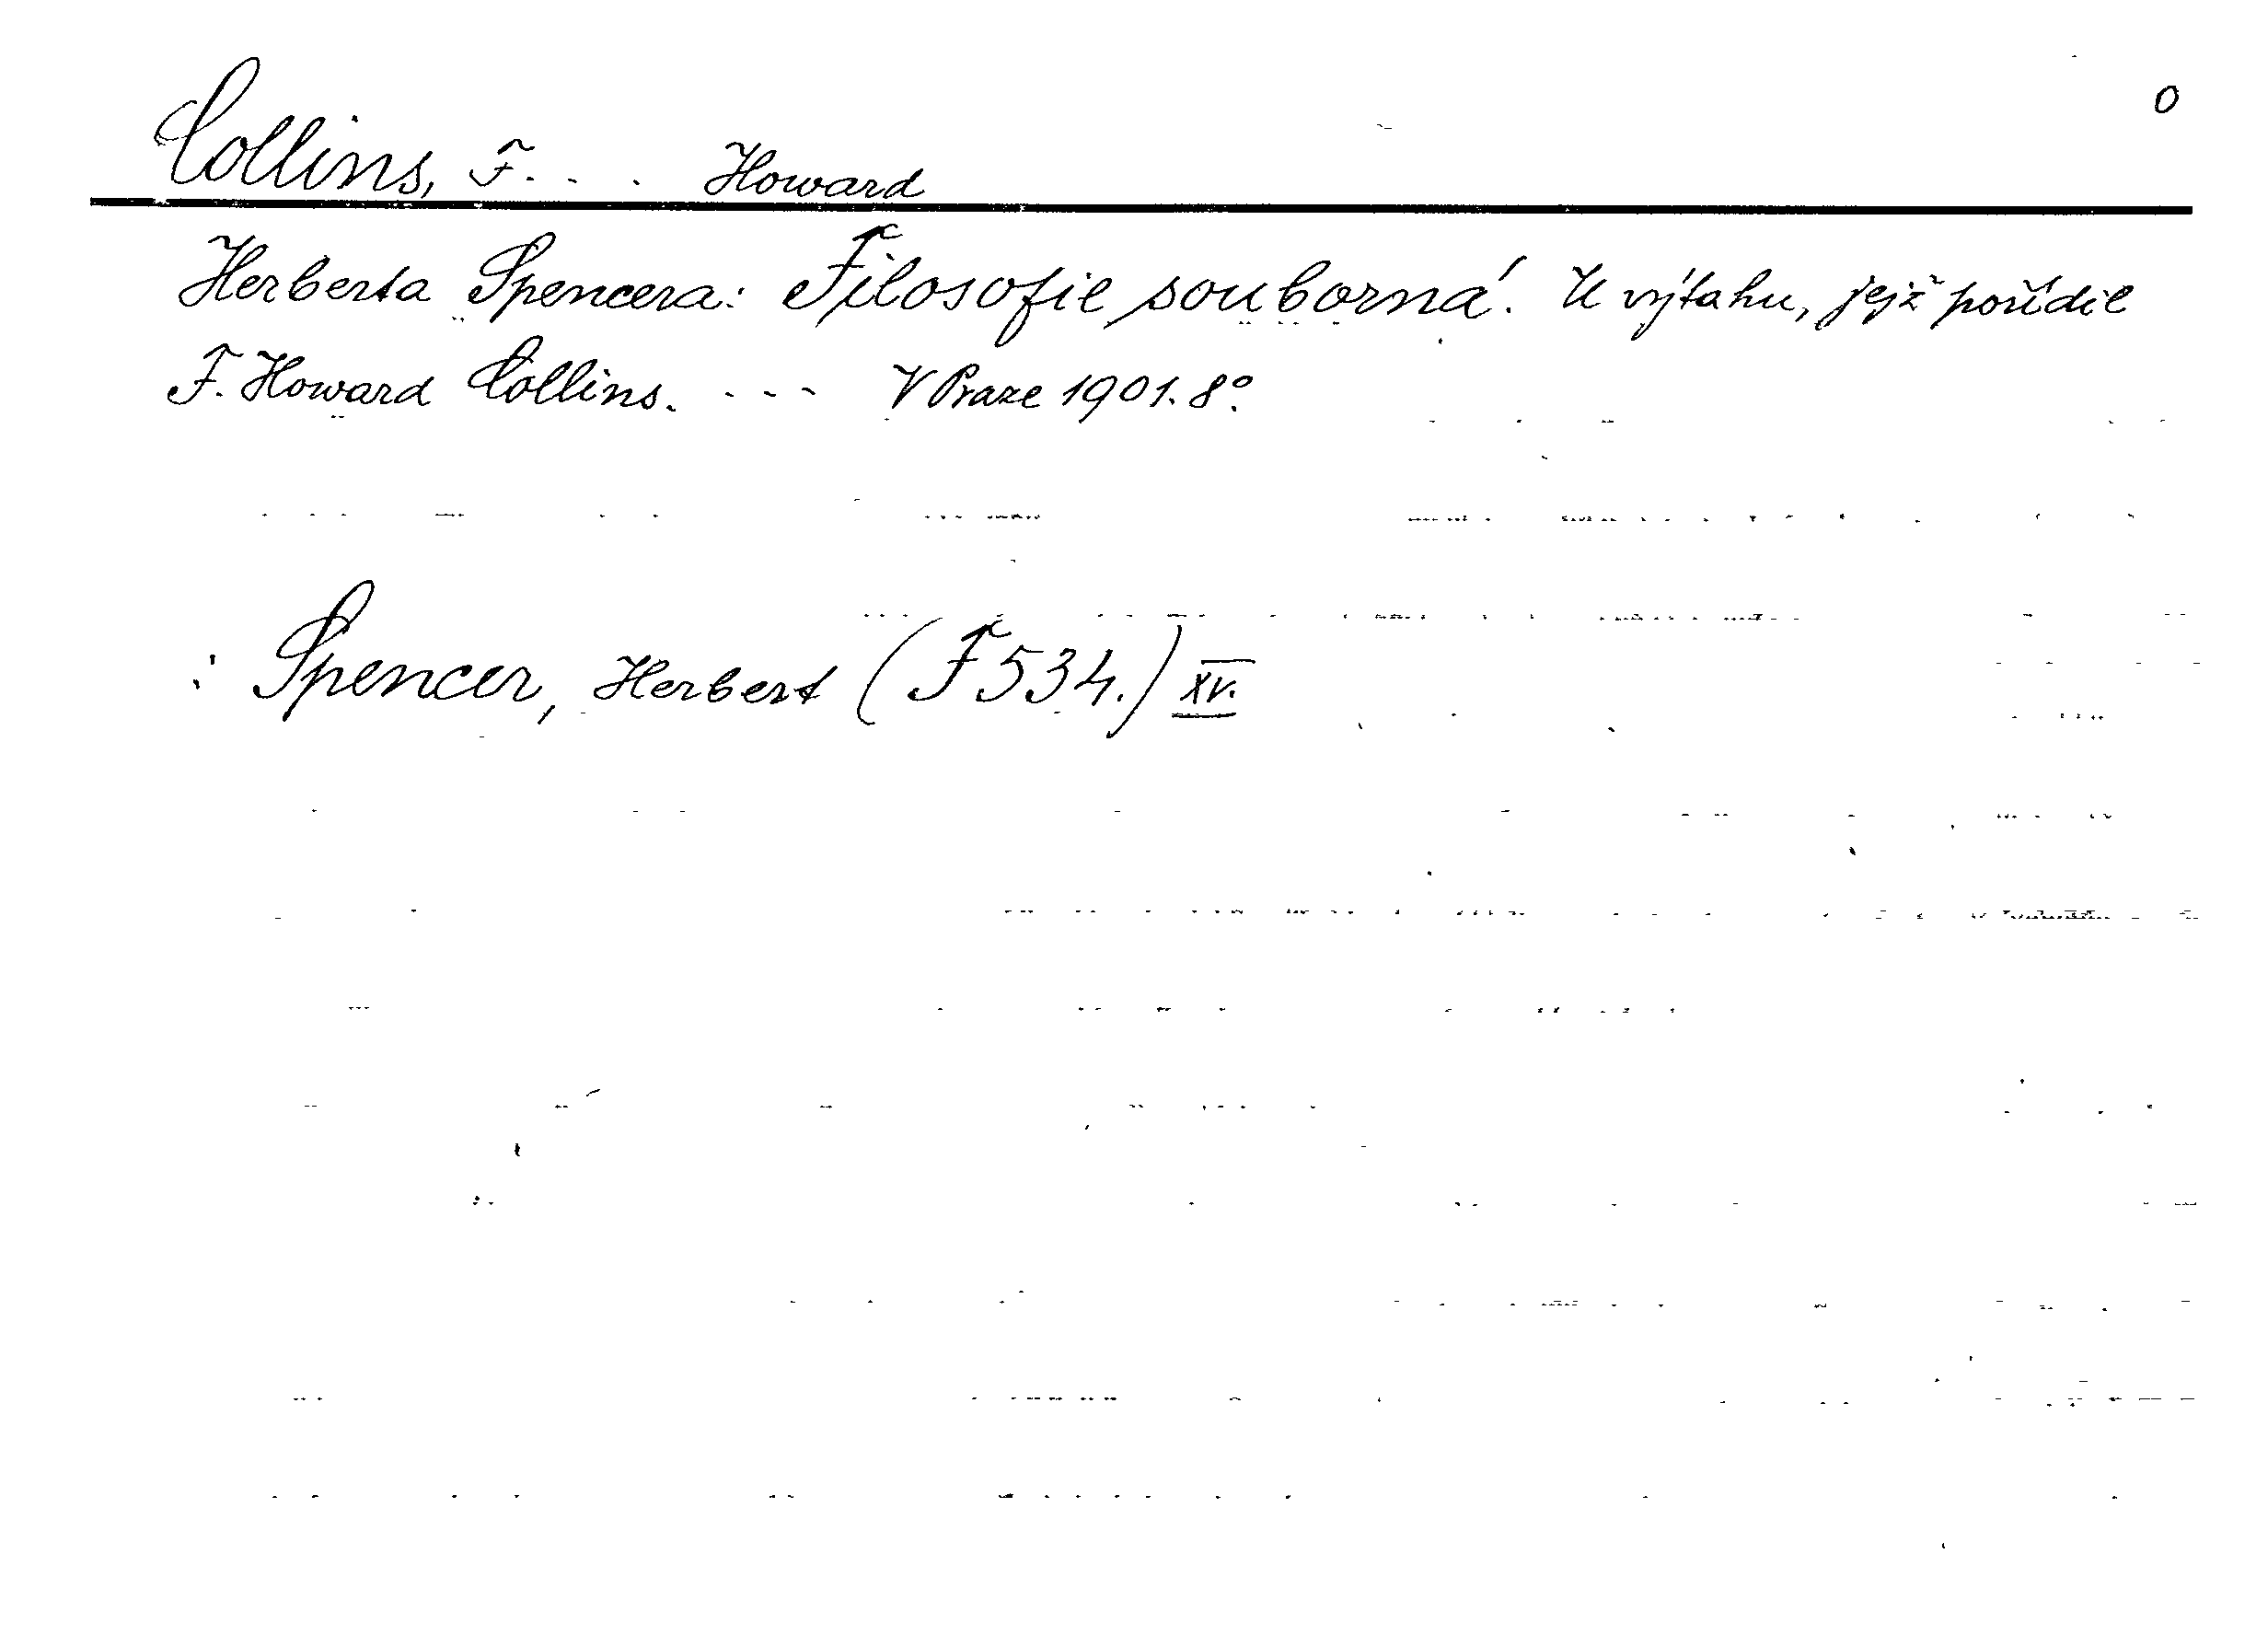 0
Collins, F. . . Howard
Herberta Spencera: Filosofie souborná. U výtahu, jejž pořídil
F. Howard Collins. - - - V Praze 1901. 8°.
: Spencer, Herbert (F 534.) XV.